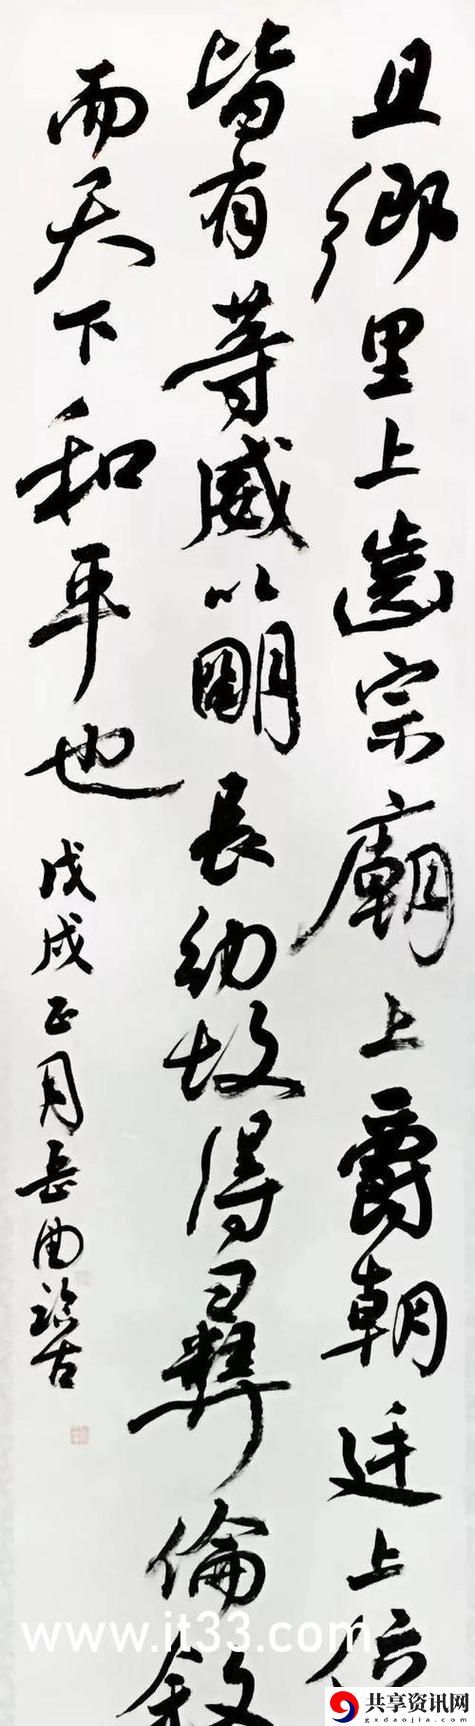 且鄉里上齒宗廟上爵朝廷上位
皆有等威以明長幼故得彝倫敘
而天下和平也
戊戌正月岳曲臨古
www.it33.com
共享资讯网
gxdaojia.com